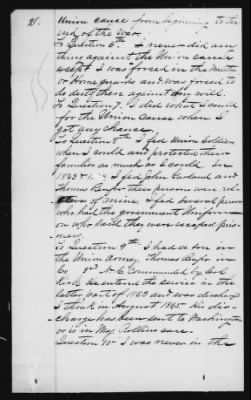 21.
Union cause from beginning to the
end of the war.
To Question 6th I never did any
thing against the Union cause
except I was forced in the Militia
or Home guards and was forced to
do duty there against my will.
To Question 7. I did what I could
for the Union Cause when I
got any chance.
To Question 8th I fed Union Soldiers
when I could and protected their
families as much as I could. In
1863 & I fed John Garland and
Thomas Renfro these persons were rel-
atives of mine. I fed several persons
who had the government uniform
on who said they were escaped priso-
ners.
To Question 9th I had a son in
the Union Army. Thomas Renfro in
Co 3d N.C. Commanded by Col
Kirk he entered the service in the
latter part of 1863 and was discharged
I think in August 1865. His dis-
charge has been sent to Washington
or is in Maj Rollins care.
Question 10th I was never in the